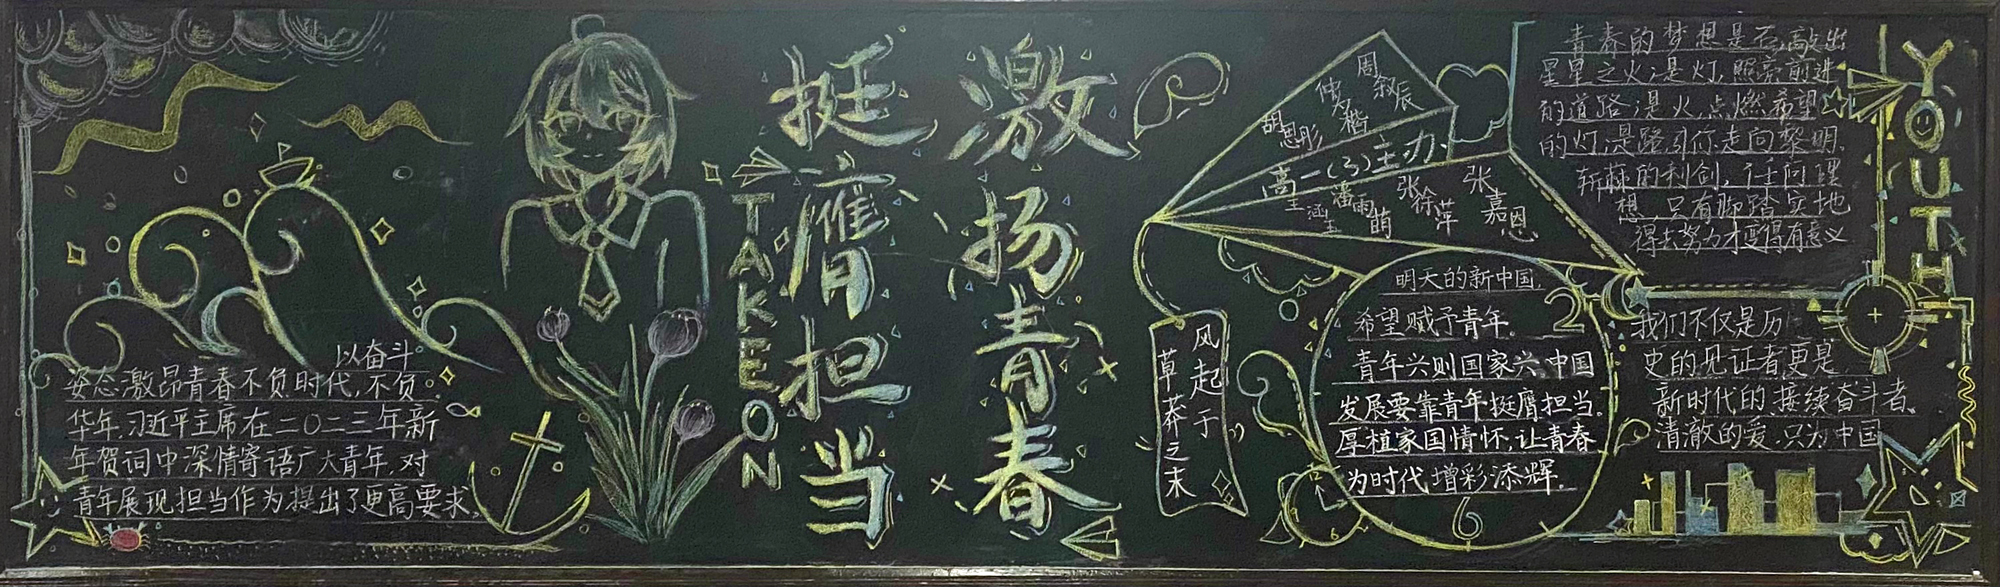 以奋斗
姿态激昂青春不负时代,不负
华年.习近平主席在二〇二三年新
年贺词中深情寄语广大青年.对
青年展现担当作为提出了更高要求.
TAKE ON
挺膺担当
激扬青春
周叙辰
仲名楷
胡恩彤
高一(3)主办.
王涵玉
潘雨萌
张徐萍
张嘉恩
风起于
草莽之末
明天的新中国.
希望赋予青年.
青年兴则国家兴.中国
发展要靠青年挺膺担当.
厚植家国情怀,让青春
为时代增彩添辉.
2
6
12
6
青春的梦想是否敲出
星星之火是灯,照亮前进
的道路是火,点燃希望
的灯是路引你走向黎明.
斩棘的利剑,任何理
想,只有脚踏实地
得去努力才变得有意义
我们不仅是历
史的见证者更是
新时代的接续奋斗者.
清澈的爱.只为中国
YOUTH